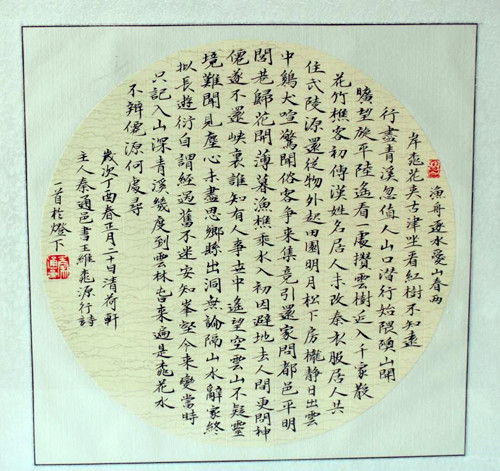 漁舟逐水愛山春兩
岸桃花夾古津坐看紅樹不知遠
行盡青溪忽值人山口潛行始隈隩山開
曠望旋平陸遙看一處攢雲樹近入千家散
花竹樵客初傳漢姓名居人未改秦衣服居人共
住武陵源還從物外起田園明月松下房櫳靜日出雲
中鷄犬喧驚聞俗客爭來集竟引還家問都邑平明
閭巷歸花開薄暮漁樵乘水入初因避地去人間更問神
僊遂不還峽裏誰知有人事世中遙望空雲山不疑靈
境難聞見塵心未盡思鄉縣出洞無論隔山水辭家終
擬長遊衍自謂經過舊不迷安知峯壑今來變當時
只記入山深青溪幾度到雲林春來遍是桃花水
不辨僊源何處尋
歲次丁酉春正月二十日清荷軒
主人秦通邑書王維桃源行詩
一首於燈下